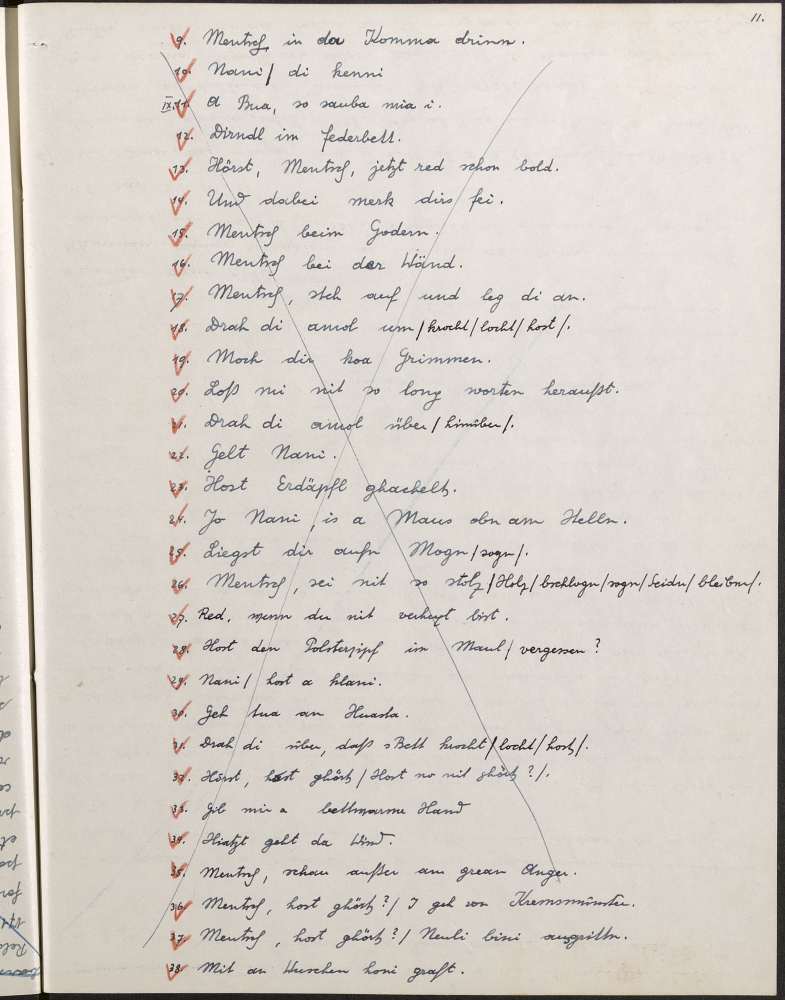 11.
9. Mentsch in da Komma drinn.
10. Nani / di kenni
IX. 11. A Bua, so sauba mia i.
12. Dirndl im Federbett.
13. Hörst, Mentsch, jetzt red schon bold.
14. Und dabei merk dirs fei.
15. Mentsch beim Godern.
16. Mentsch bei der Wänd.
17. Mentsch, steh auf und leg di an.
18. Drah di amol um / krocht / locht / host /.
19. Moch dir koa Grimmen.
20. Loß mi nit so long worten heraußt.
21. Drah di amol über / hinüber /.
22. Gelt Nani.
23. Host Erdäpfl ghachelt.
24. Jo Nani, is a Maus obn am Stelln.
25. Liegst dir aufn Mogn / sogn /.
26. Mentsch, sei nit so stolz / Holz / bschlogn / sogn / Seidn / bleibm /.
27. Red, wenn du nit verhext bist.
28. Host den Polsterzipf im Maul / vergessen ?
29. Nani / host a klani.
30. Geh tua an Huasta.
31. Drah di über, daß s Bett krocht / locht / host /.
32. Hörst, host ghört / Host no nit ghört ? /.
33. Gib mir a bettwarme Hand
34. Hiatzt geht da Wind.
35. Mentsch, schau außer am grean Anger.
36. Mentsch, host ghört ? / I geh von Kremsmünster.
37. Mentsch, host ghört ? / Neuli bini ausgrittn.
38. Mit an Wuschen honi graft.